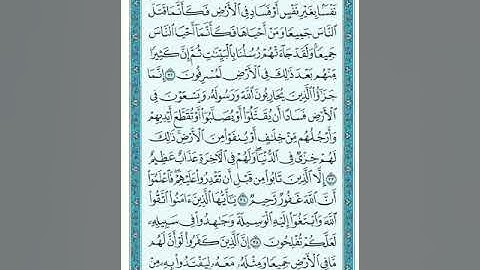 نَفْسًۢا بِغَيْرِ نَفْسٍ أَوْ فَسَادٍ فِى ٱلْأَرْضِ فَكَأَنَّمَا قَتَلَ
ٱلنَّاسَ جَمِيعًا وَمَنْ أَحْيَاهَا فَكَأَنَّمَآ أَحْيَا ٱلنَّاسَ
جَمِيعًا ۚ وَلَقَدْ جَآءَتْهُمْ رُسُلُنَا بِٱلْبَيِّنَـٰتِ ثُمَّ إِنَّ كَثِيرًا
مِّنْهُم بَعْدَ ذَٰلِكَ فِى ٱلْأَرْضِ لَمُسْرِفُونَ ٣٢ إِنَّمَا
جَزَٰٓؤُا۟ ٱلَّذِينَ يُحَارِبُونَ ٱللَّهَ وَرَسُولَهُۥ وَيَسْعَوْنَ فِى
ٱلْأَرْضِ فَسَادًا أَن يُقَتَّلُوٓا۟ أَوْ يُصَلَّبُوٓا۟ أَوْ تُقَطَّعَ أَيْدِيهِمْ
وَأَرْجُلُهُم مِّنْ خِلَـٰفٍ أَوْ يُنفَوْا۟ مِنَ ٱلْأَرْضِ ۚ ذَٰلِكَ
لَهُمْ خِزْىٌ فِى ٱلدُّنْيَا ۖ وَلَهُمْ فِى ٱلْـَٔاخِرَةِ عَذَابٌ عَظِيمٌ
٣٣ إِلَّا ٱلَّذِينَ تَابُوا۟ مِن قَبْلِ أَن تَقْدِرُوا۟ عَلَيْهِمْ ۖ فَٱعْلَمُوٓا۟
أَنَّ ٱللَّهَ غَفُورٌ رَّحِيمٌ ٣٤ يَـٰٓأَيُّهَا ٱلَّذِينَ ءَامَنُوا۟ ٱتَّقُوا۟
ٱللَّهَ وَٱبْتَغُوٓا۟ إِلَيْهِ ٱلْوَسِيلَةَ وَجَـٰهِدُوا۟ فِى سَبِيلِهِۦ
لَعَلَّكُمْ تُفْلِحُونَ ٣٥ إِنَّ ٱلَّذِينَ كَفَرُوا۟ لَوْ أَنَّ لَهُم
مَّا فِى ٱلْأَرْضِ جَمِيعًا وَمِثْلَهُۥ مَعَهُۥ لِيَفْتَدُوا۟ بِهِۦ مِنْ